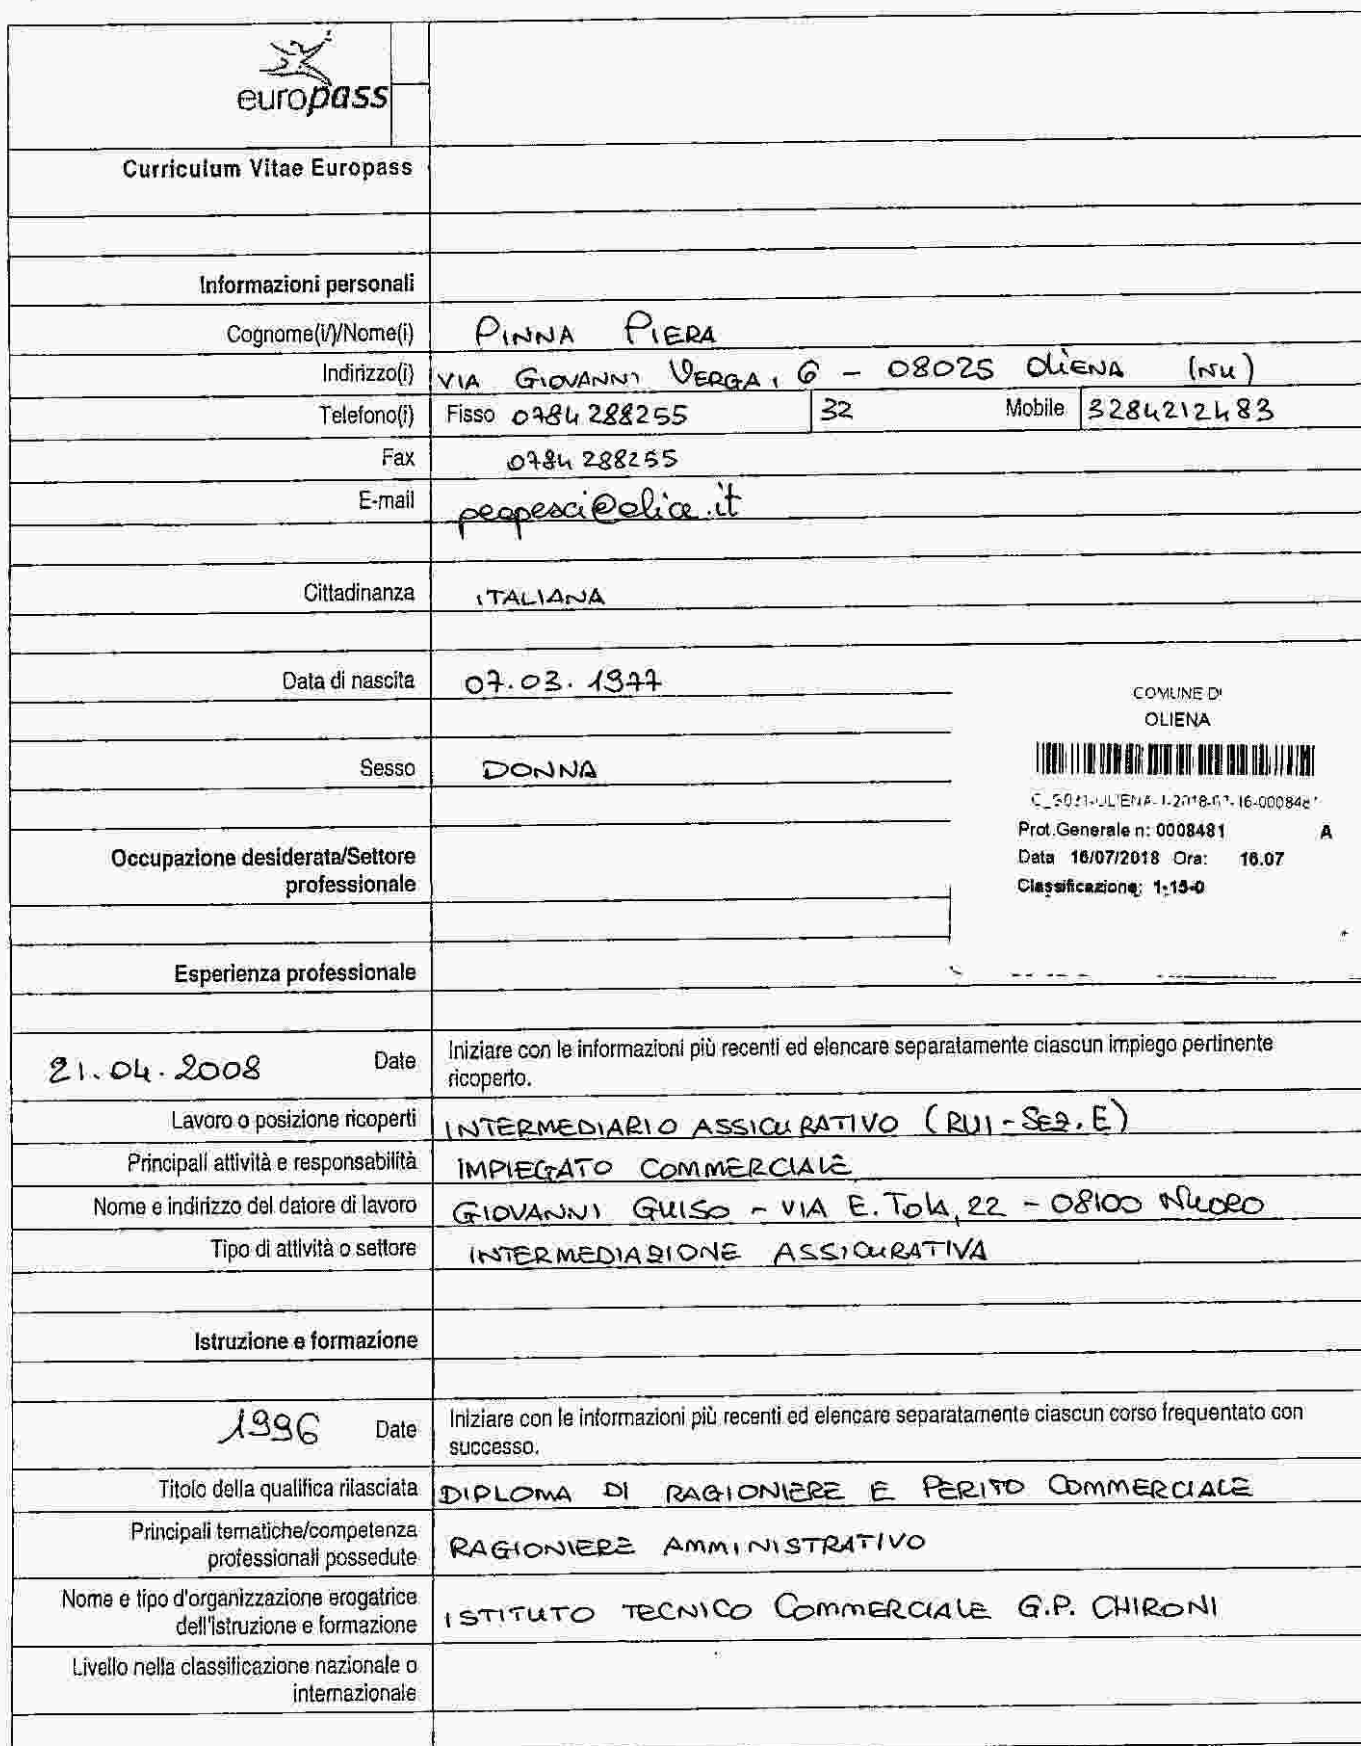 europass
Curriculum Vitae Europass
Informazioni personali
Cognome(i/)/Nome(i) PINNA PIERA
Indirizzo(i) VIA GIOVANNI VERGA, 6 - 08025 OLIENA (NU)
Telefono(i) Fisso 0784 288255 32 Mobile 3284212483
Fax 0784 288255
E-mail
Cittadinanza ITALIANA
Data di nascita 07.03.1977
COMUNE DI
OLIENA
Sesso DONNA
Prot.Generale n: 0008481 A
Occupazione desiderata/Settore
professionale
Data 16/07/2018 Ora: 16.07
Classificazione: 1-15-0
Esperienza professionale
21.04.2008 Date Iniziare con le informazioni più recenti ed elencare separatamente ciascun impiego pertinente
ricoperto.
Lavoro o posizione ricoperti INTERMEDIARIO ASSICURATIVO (RUI-SEZ.E)
Principali attività e responsabilità IMPIEGATO COMMERCIALE
Nome e indirizzo del datore di lavoro GIOVANNI GUISO - VIA E. TOLA, 22 - 08100 NUORO
Tipo di attività o settore INTERMEDIAZIONE ASSICURATIVA
Istruzione e formazione
1996 Date Iniziare con le informazioni più recenti ed elencare separatamente ciascun corso frequentato con
successo.
Titolo della qualifica rilasciata DIPLOMA DI RAGIONIERE E PERITO COMMERCIALE
Principali tematiche/competenza
professionali possedute RAGIONIERE AMMINISTRATIVO
Nome e tipo d'organizzazione erogatrice
dell'istruzione e formazione ISTITUTO TECNICO COMMERCIALE G.P. CHIRONI
Livello nella classificazione nazionale o
internazionale